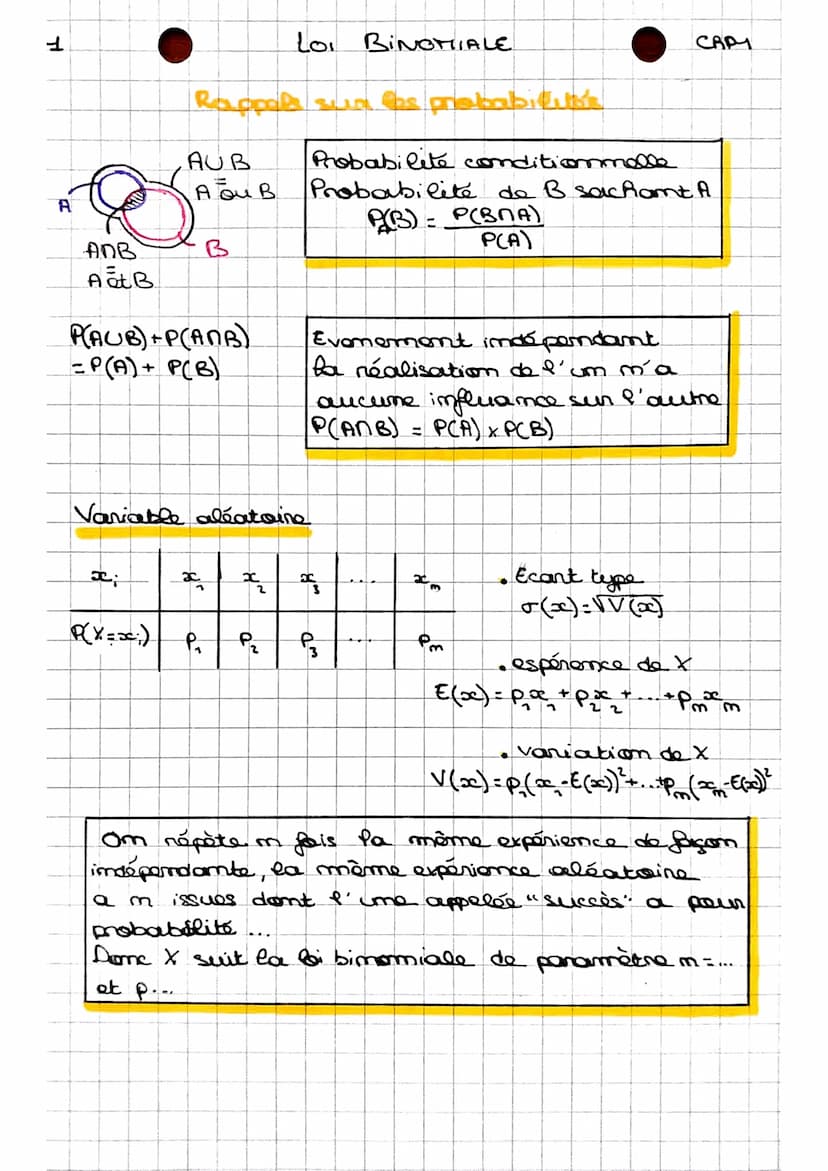 1 LOI BINOMIALE CAP1
Rappels sur les probabilités
A∪B
A ou B
A
A∩B
A et B
B
Probabilité conditionnelle
Probabilité de B sachant A
P_A(B) = P(B∩A) / P(A)
P(A∪B)+P(A∩B)
= P(A) + P(B)
Evenement indépendant
la réalisation de l'un n'a
aucune influence sur l'autre
P(A∩B) = P(A) × P(B)
Variable aléatoire
x_i x_1 x_2 x_3 ... x_n
P(X=x_i) p_1 p_2 p_3 ... p_n
• Ecart type
σ(x)=√V(x)
• espérance de X
E(x) = p_1x_1 + p_2x_2 + ... + p_nx_n
• variation de X
V(x) = p_1(x_1-E(x))² + ... + p_n(x_n-E(x))²
On répète n fois la même expérience de façon
indépendante, la même expérience aléatoire
a n issues dont l'une appelée "succès" a pour
probabilité ...
Donc X suit la loi binomiale de paramètre n=...
et p...